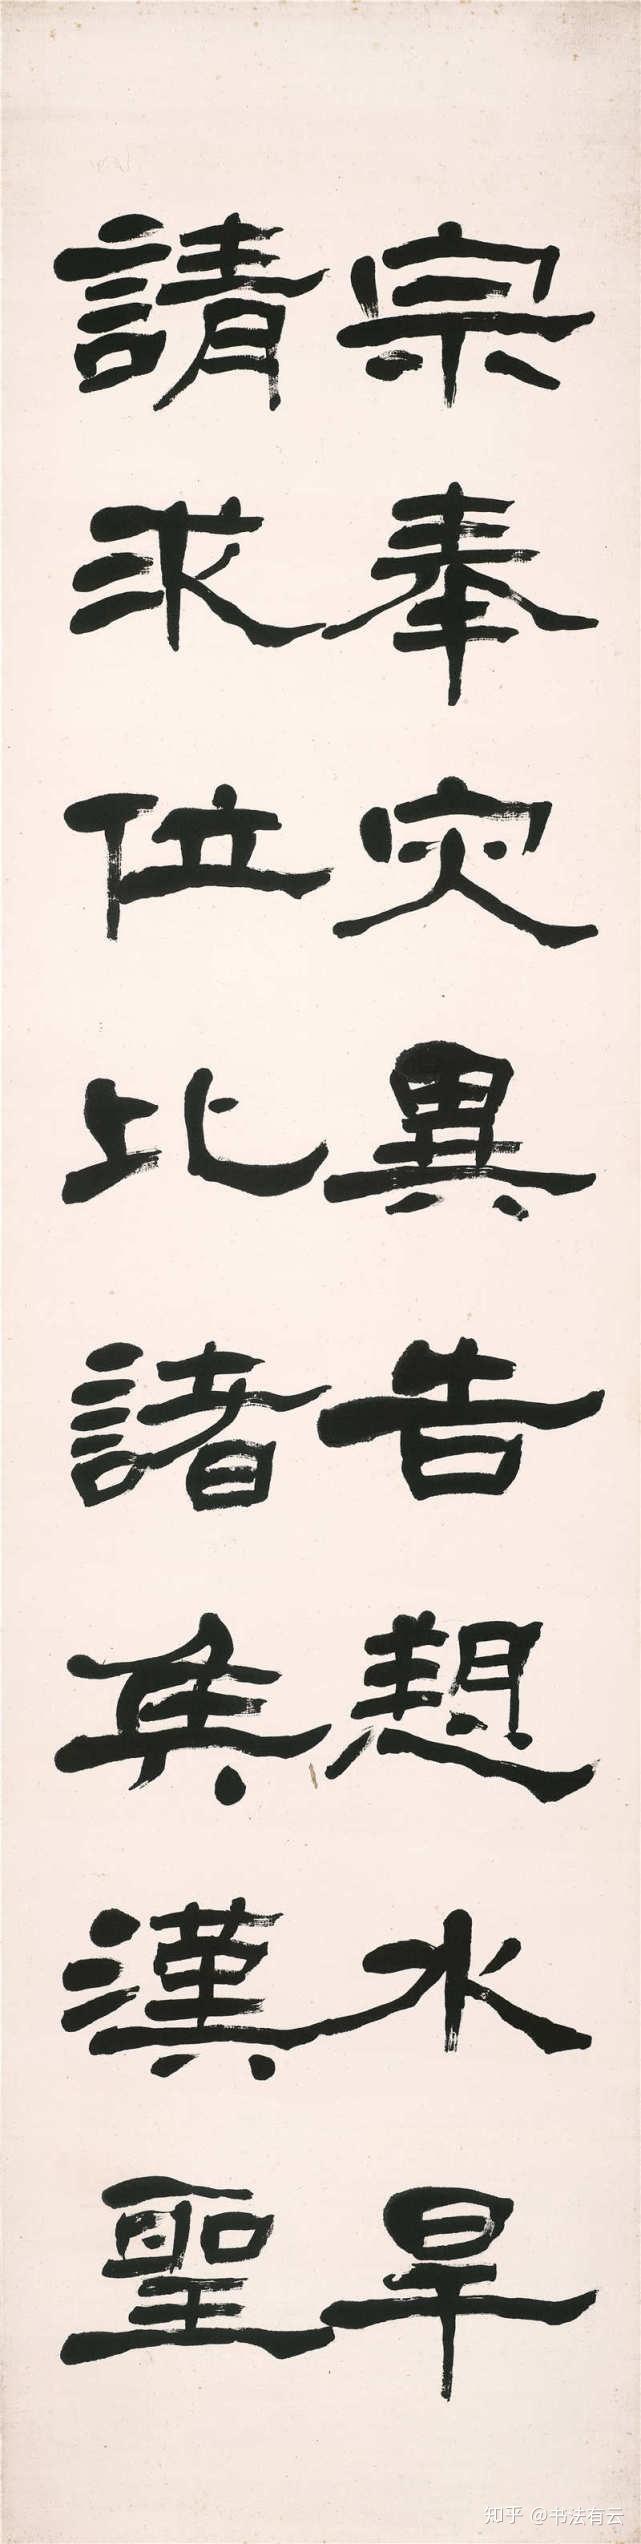 宗奉灾異告愬水旱
請求位比諸侯漢聖
知乎 @书法有云